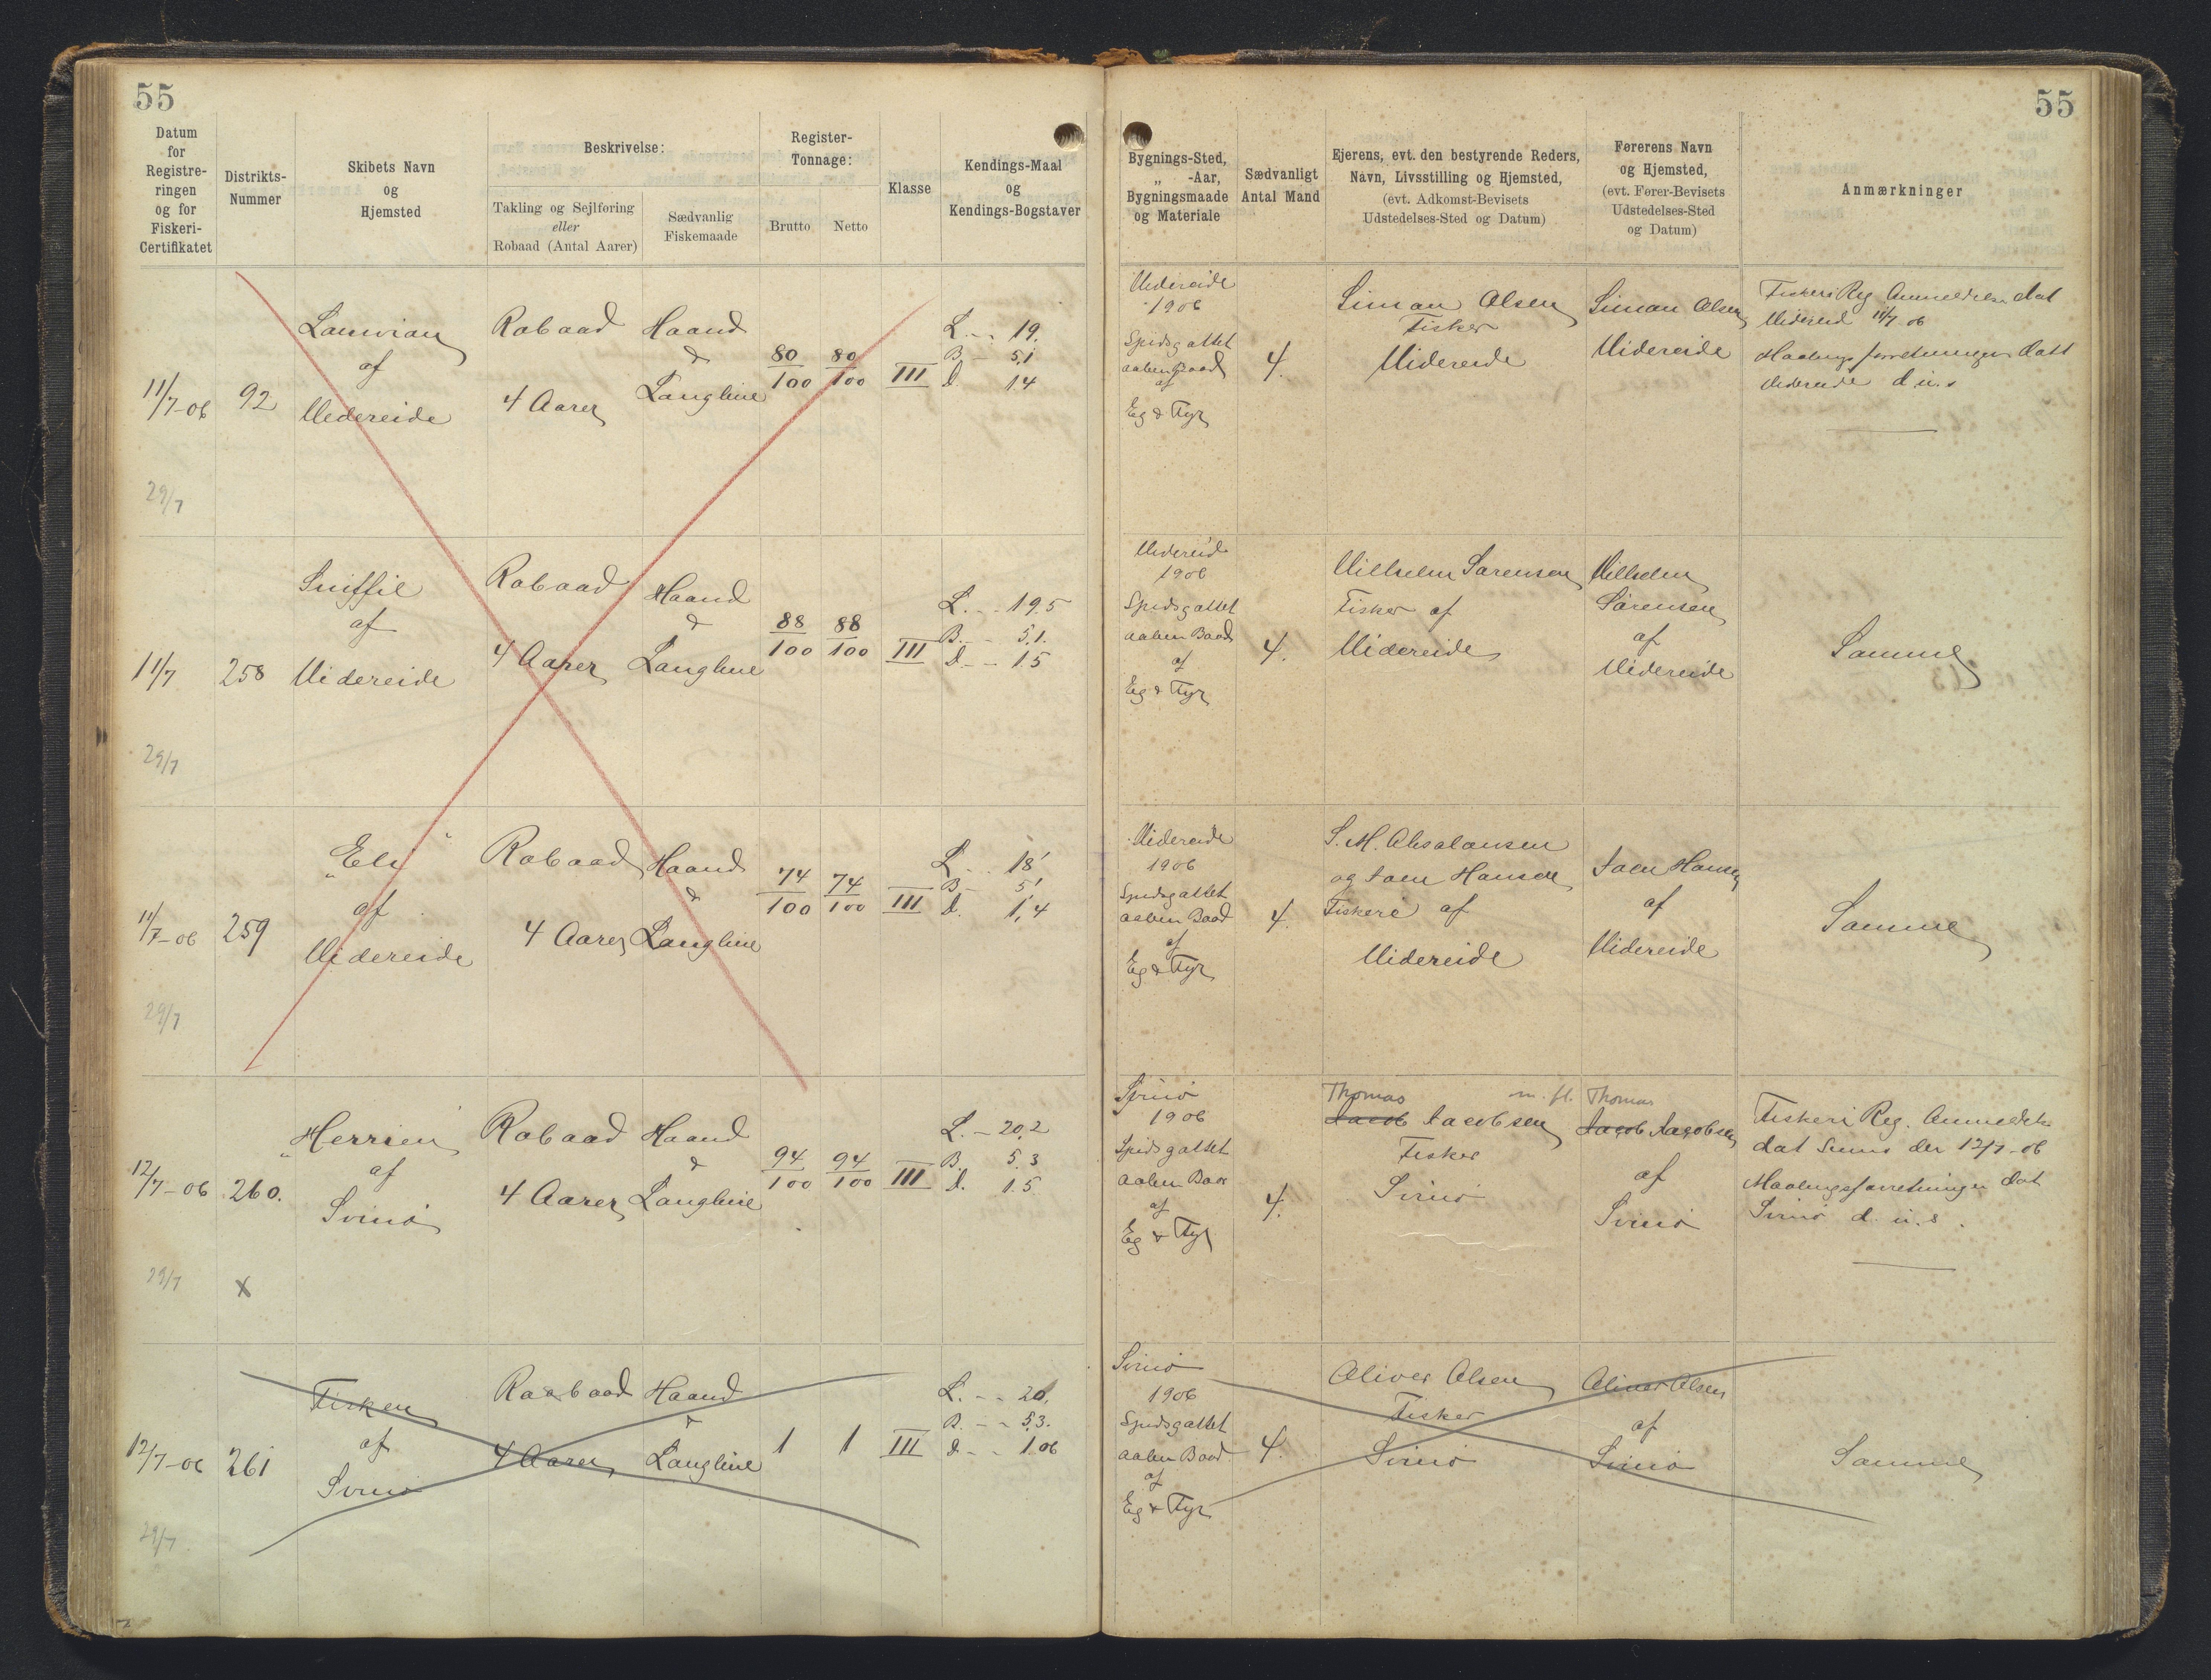 55
55
Datum
for
Registre-
ringen
og for
Fiskeri-
Certifikatet
Distrikts-
Nummer
Skibets Navn
og
Hjemsted
Beskrivelse:
Takling og Sejlføring
eller
Robaad (Antal Aarer)
Sædvanlig
Fiskemaade
Register-
Tonnage:
Brutto
Netto
Klasse
Kendings-Maal
og
Kendings-Bogstaver
Bygnings-Sted,
„ -Aar,
Bygningsmaade
og Materiale
Sædvanligt
Antal Mand
Ejerens, evt. den bestyrende Reders,
Navn, Livsstilling og Hjemsted,
(evt. Adkomst-Bevisets
Udstedelses-Sted og Datum)
Førerens Navn
og Hjemsted,
(evt. Fører-Bevisets
Udstedelses-Sted
og Datum)
Anmærkninger
11/7-06
29/7
92
af
Videreide
Robaad
4 Aarer
Haand
&
Langline
80/100
80/100
III
L. 19.
B. 5,1
d. 14
Videreide
1906
Spidsgattet
aaben Baad
af
Eg & Fyr
4.
Simon Olsen
Fisker
Videreide
Simon Olsen
Videreide
Fiskeri Reg Anmeldelse dat
Videreid 11/7 06
Maalingsforretningen datt
Videreide d.u.s
11/7
29/7
258
af
Videreide
Robaad
4 Aarer
Haand
&
Langline
88/100
88/100
III
L. 19.5
B. 5.1.
d. 1.5
Videreid
1906
Spidsgattet
aaben Baad
af
Eg & Fyr
4.
Vilhelm Sørensen
Fisker af
Videreide
Vilhelm
Sørensen
af
Videreide
Samme
11/7-06
29/7
259
"Eli"
af
Videreide
Robaad
4 Aarer
Haand
&
Langline
74/100
74/100
III
L. 18'
B. 5'
d. 1,4
Videreide
1906
Spidsgattet
aaben Baad
af
Eg & Fyr
4.
S. M. Absalonsen
og Joen Hansen
Fiskere af
Videreide
Joen Hansen
af
Videreide
Samme
12/7-06
29/7
260.
x
af
Svinø
Robaad
4 Aarer
Haand
&
Langline
94/100
94/100
III
L. 20,2
B. 5.3
d. 1.5
Svinø
1906
Spidsgattet
aaben Baad
af
Eg & Fyr
4.
Thomas m. fl.
Jacob Jacobsen
Fisker
Svinø
Thomas
Jacob Jacobsen
af
Svinø
Fiskeri Reg. Anmeldelse
dat Svinø den 12/7-06
Maalingsforretningen dat
Svinø d.u.s.
12/7-06
29/7
261
Fisken
af
Svinø
Robaad
4 Aarer
Haand
&
Langline
1
1
III
L. 20.
B. 5,3.
d. 1.06
Svinø
1906
Spidsgattet
aaben Baad
af
Eg & Fyr
4.
Oliver Olsen
Fisker
Svinø
Oliver Olsen
af
Svinø
Samme